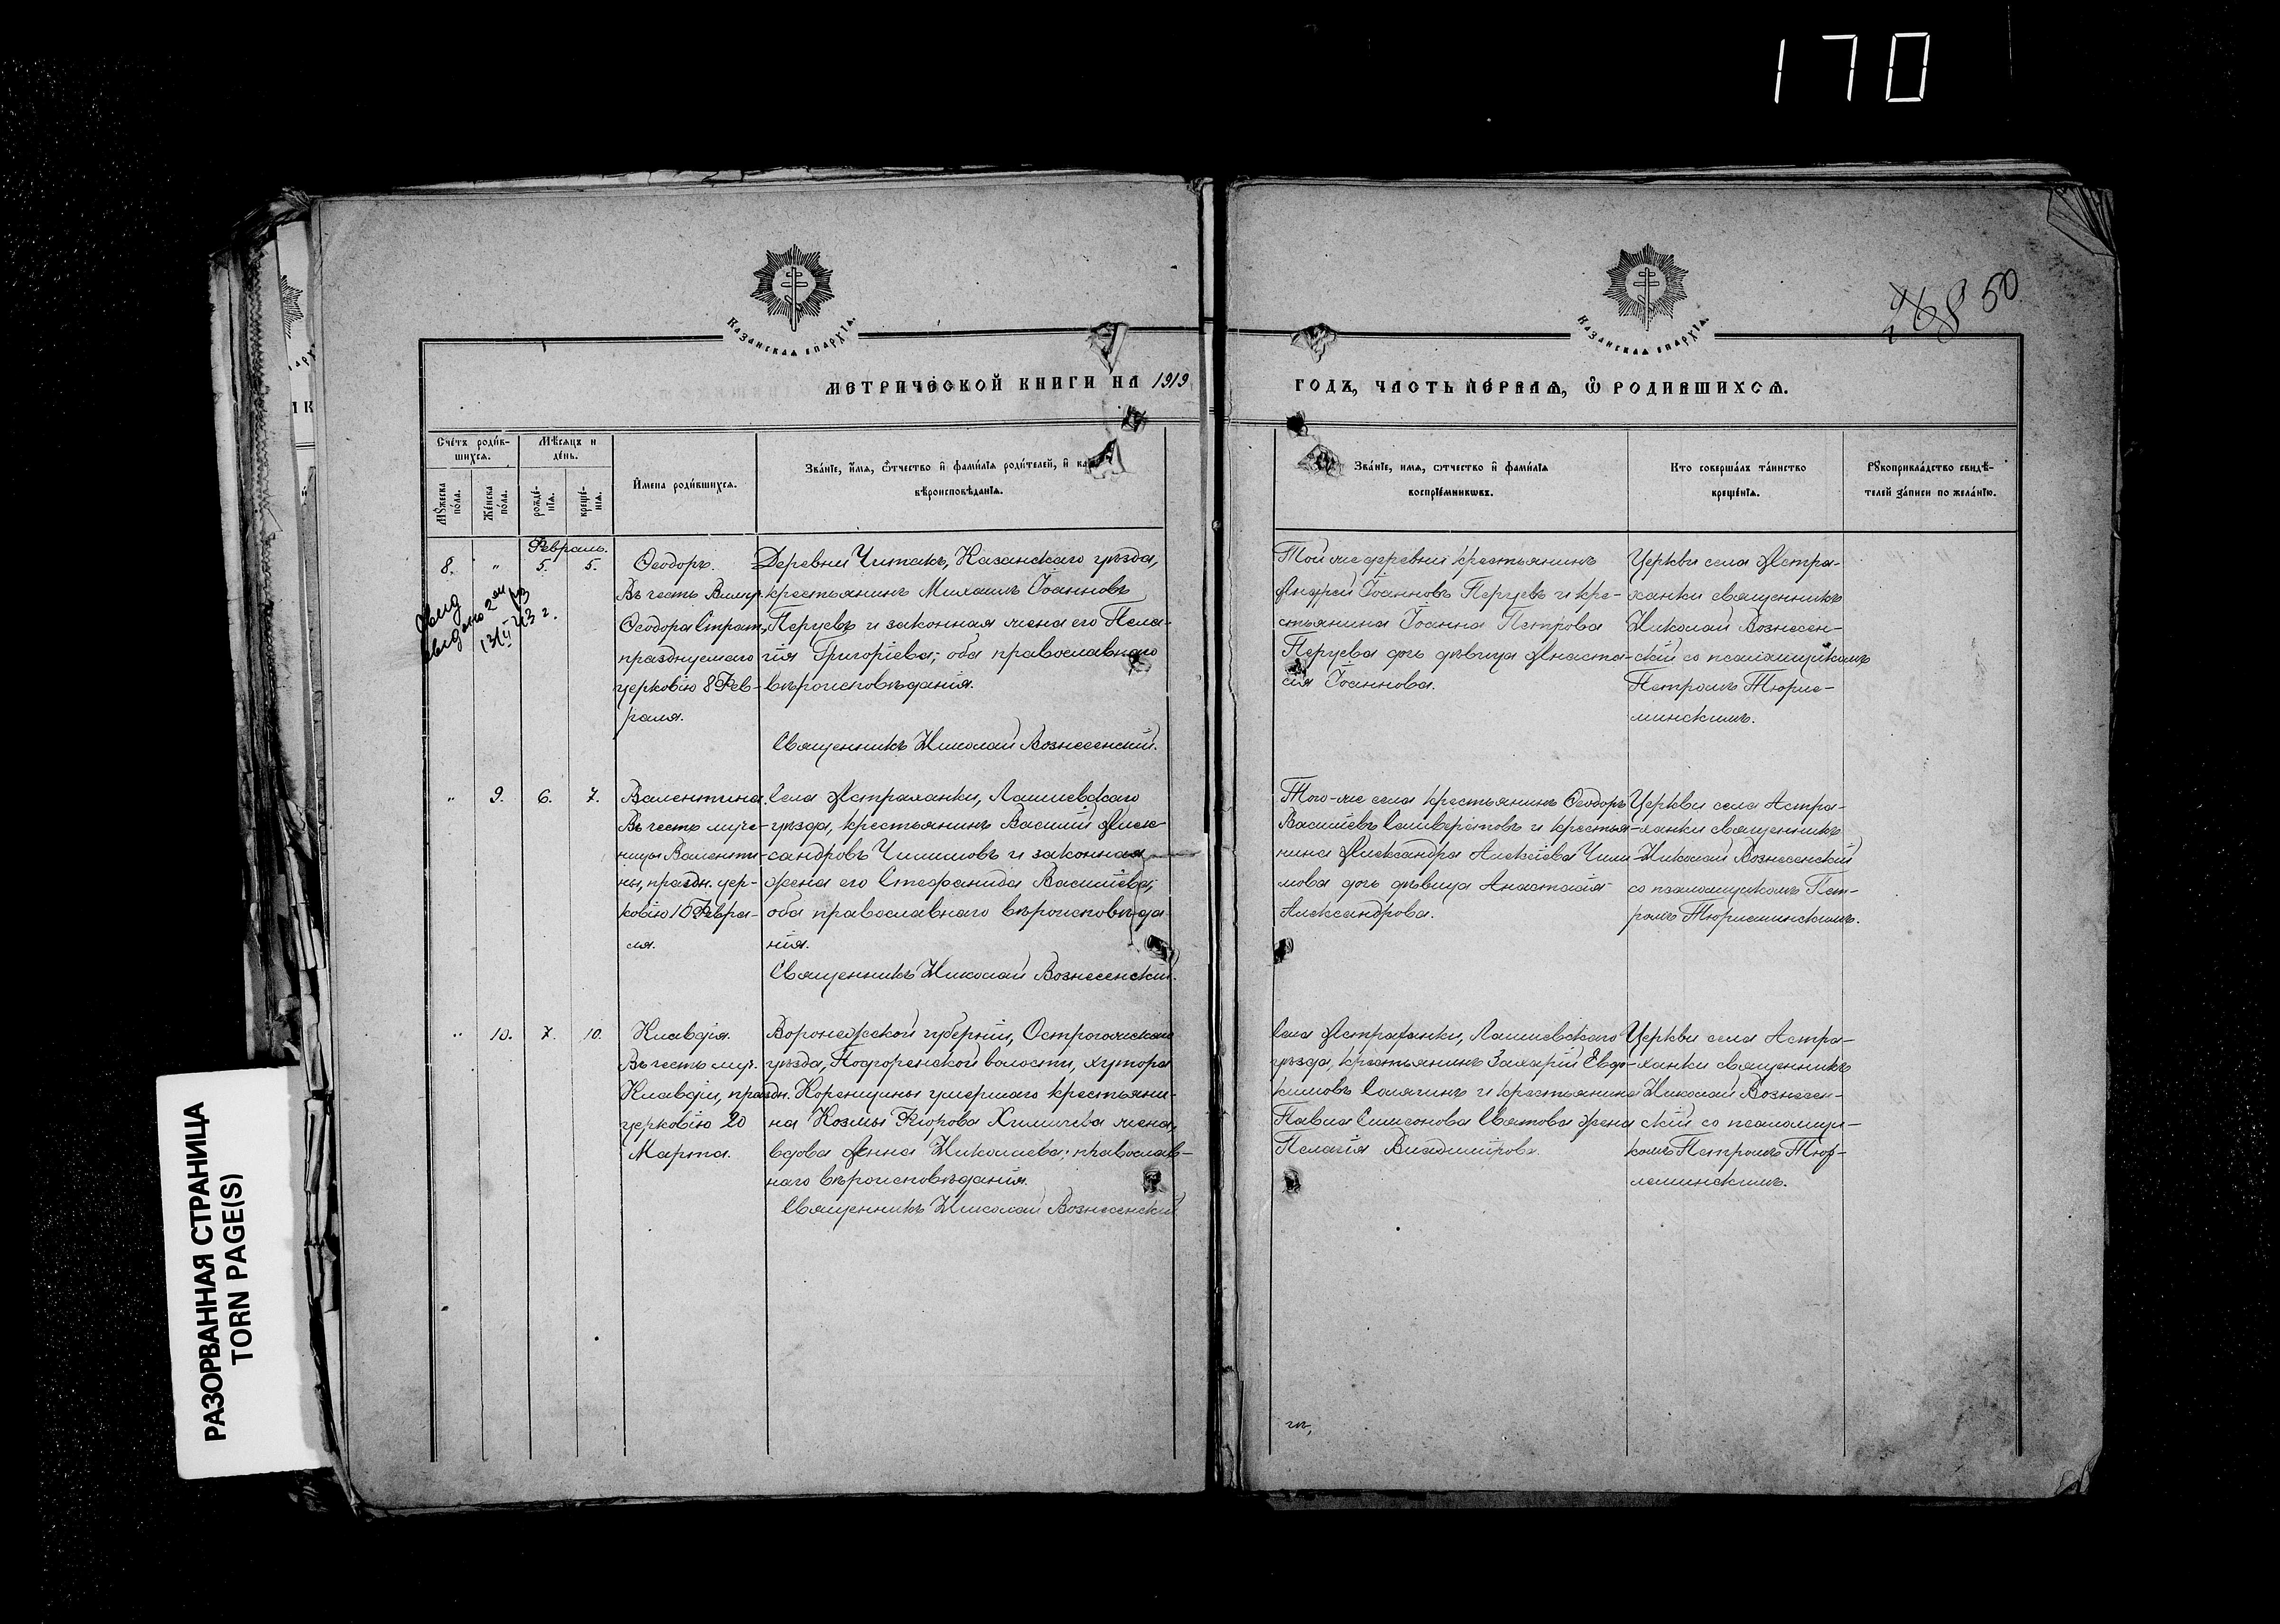 170
Казанская епархїя.
Казанская епархїя.
50
МЕТРИЧЕСКОЙ КНИГИ НА 1919
ГОДЪ, ЧАСТЬ ПЕРВАЯ, Ѿ РОДИВШИХСЯ.
Счéтъ роди́в-
шихся.
Мѣ́сяцъ и
дéнь.
Мꙋ́жеска
пóла.
Жéнска
пóла.
рождé-
нїя.
крещé-
нїя.
И́мена роди́вшихся.
Звáнїе, и́мя, ѻ́тчество и҆ фами́лїя роди́телей, и҆
вѣроисповѣ́данїя.
Звáнїе, имя, ѻтчество и҆ фами́лїя
воспрїéмниковъ.
Кто совершáлъ тáинство
крещéнїя.
Рꙋкоприклáдство свидѣ́-
телей зáписи по желáнїю.
Февраль.
8. " 5. 5.
Ѳеодоръ.
Въ честь Вмуч.
Ѳеодора Страт.,
празднуемаго
церковію 8 Фев-
раля.
Деревни Читакъ, Казанскаго уѣзда,
крестьянинъ Михаилъ Іоанновъ
Перуевъ и законная жена его Пела-
гія Григоріева; оба православнаго
вѣроисповѣданія.
Священникъ Николай Вознесенскій.
Той же деревни крестьянинъ
Андрей Іоанновъ Перуевъ и кре-
стьянина Іоанна Петрова
Перуева дочь дѣвица Анаста-
сія Іоаннова.
Церкви села Астра-
ханки священникъ
Николай Вознесен-
скій со псаломщикомъ
Петромъ Тюрле-
минскимъ.
" 9. 6. 7.
Валентина.
Въ честь муче-
ницы Валенти-
ны, праздн. цер-
ковію 10 Февра-
ля.
Села Астраханки, Лаишевскаго
уѣзда, крестьянинъ Василій Алек-
сандровъ Чилимовъ и законная
жена его Стефанида Василіева;
оба православнаго вѣроисповѣда
нія.
Священникъ Николай Вознесенскій.
Того-же села крестьянинъ Ѳеодоръ
Василіевъ Селиверстовъ и крестья-
нина Александра Алексіева Чили-
мова дочь дѣвица Анастасія
Александрова.
Церкви села Астра-
ханки священникъ
Николай Вознесенскій
со псаломщикомъ Пет-
ромъ Тюрлеминскимъ.
" 10. 7. 10.
Клавдія.
Въ честь муч.
Клавдіи, праздн.
церковію 20
Марта.
Воронежской губерніи, Острогожскаго
уѣзда, Подгоренской волости, хутора
Коренщины умершаго крестьяни-
на Козмы Ѳедорова Химичева жена,
вдова Анна Николаева; православ-
наго вѣроисповѣданія.
Священникъ Николай Вознесенскій
Села Астраханки, Лаишевскаго
уѣзда, крестьянинъ Захарій Евдо-
кимовъ Солягинъ и крестьянина
Павла Симеонова Святова жена
Пелагія Владимірова.
Церкви села Астра-
ханки священникъ
Николай Вознесен-
скій со псаломщи-
комъ Петромъ Тюр-
леминскимъ.
РАЗОРВАННАЯ СТРАНИЦА
TORN PAGE(S)